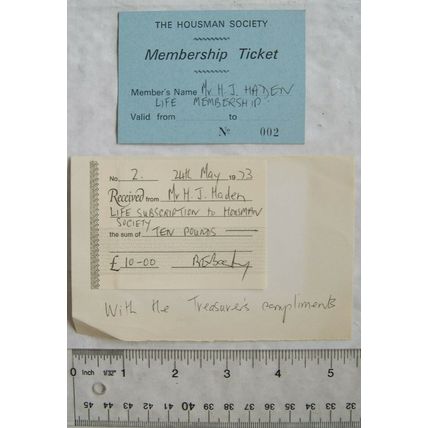 THE HOUSMAN SOCIETY
Membership Ticket
Member's Name Mr. H. J. HADEN
LIFE MEMBERSHIP
Valid from to
No 002
No. 2. 24th May 1973
Received from Mr H. J. Haden
LIFE SUBSCRIPTION to HOUSMAN
SOCIETY
the sum of TEN POUNDS
£ 10-00
With the Treasurer's compliments
0 Inch 1/32" 1 2 3 4 5
45 44 43 42 41 40 39 38 37 36 35 34 33 32